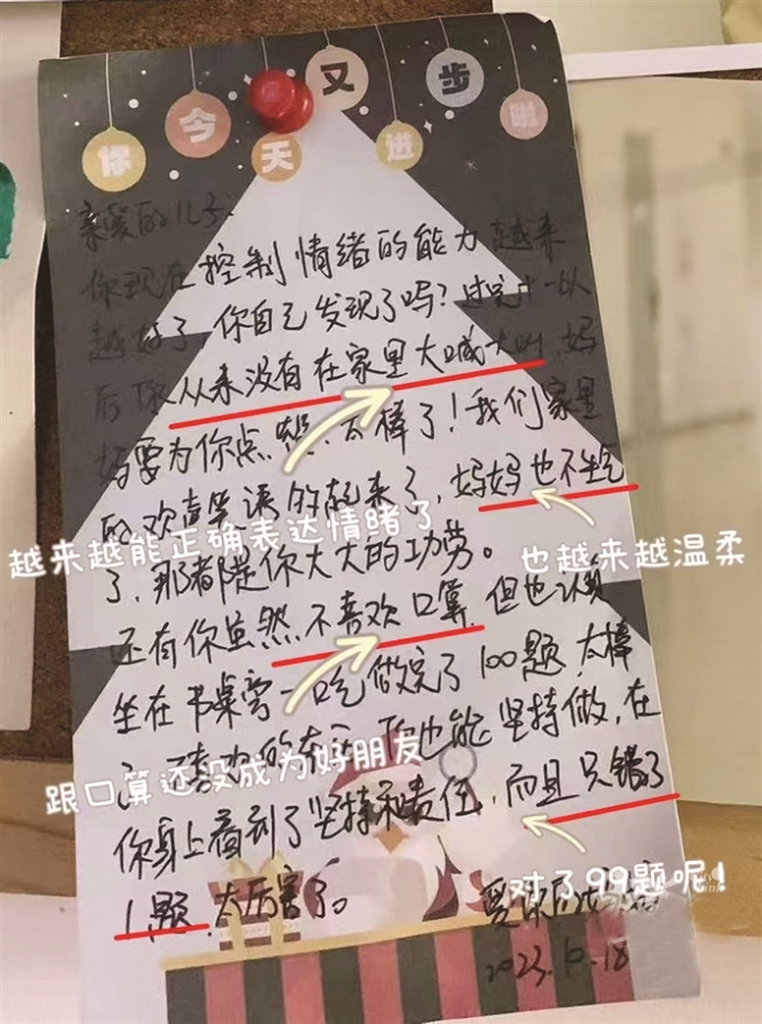 你今天又进步啦
亲爱的儿子:
你现在控制情绪的能力越来
越好了,你自己发现了吗?过完十一以
后你从来没有在家里大喊大叫,妈
妈要为你点赞,太棒了!我们家里
的欢声笑语的起来了,妈妈也不生气
越来越能正确表达情绪了
也越来越温柔
了,那都是你大大的功劳。
还有你虽然不喜欢口算,但也认真
坐在书桌旁一口气做完了100题,太棒
了,不喜欢的你也能坚持做,在
跟口算还没成为好朋友
你身上看到了坚持和责任,而且只错了
对了99题呢!
1题,太厉害了。
爱你的妈妈
2023.10.18